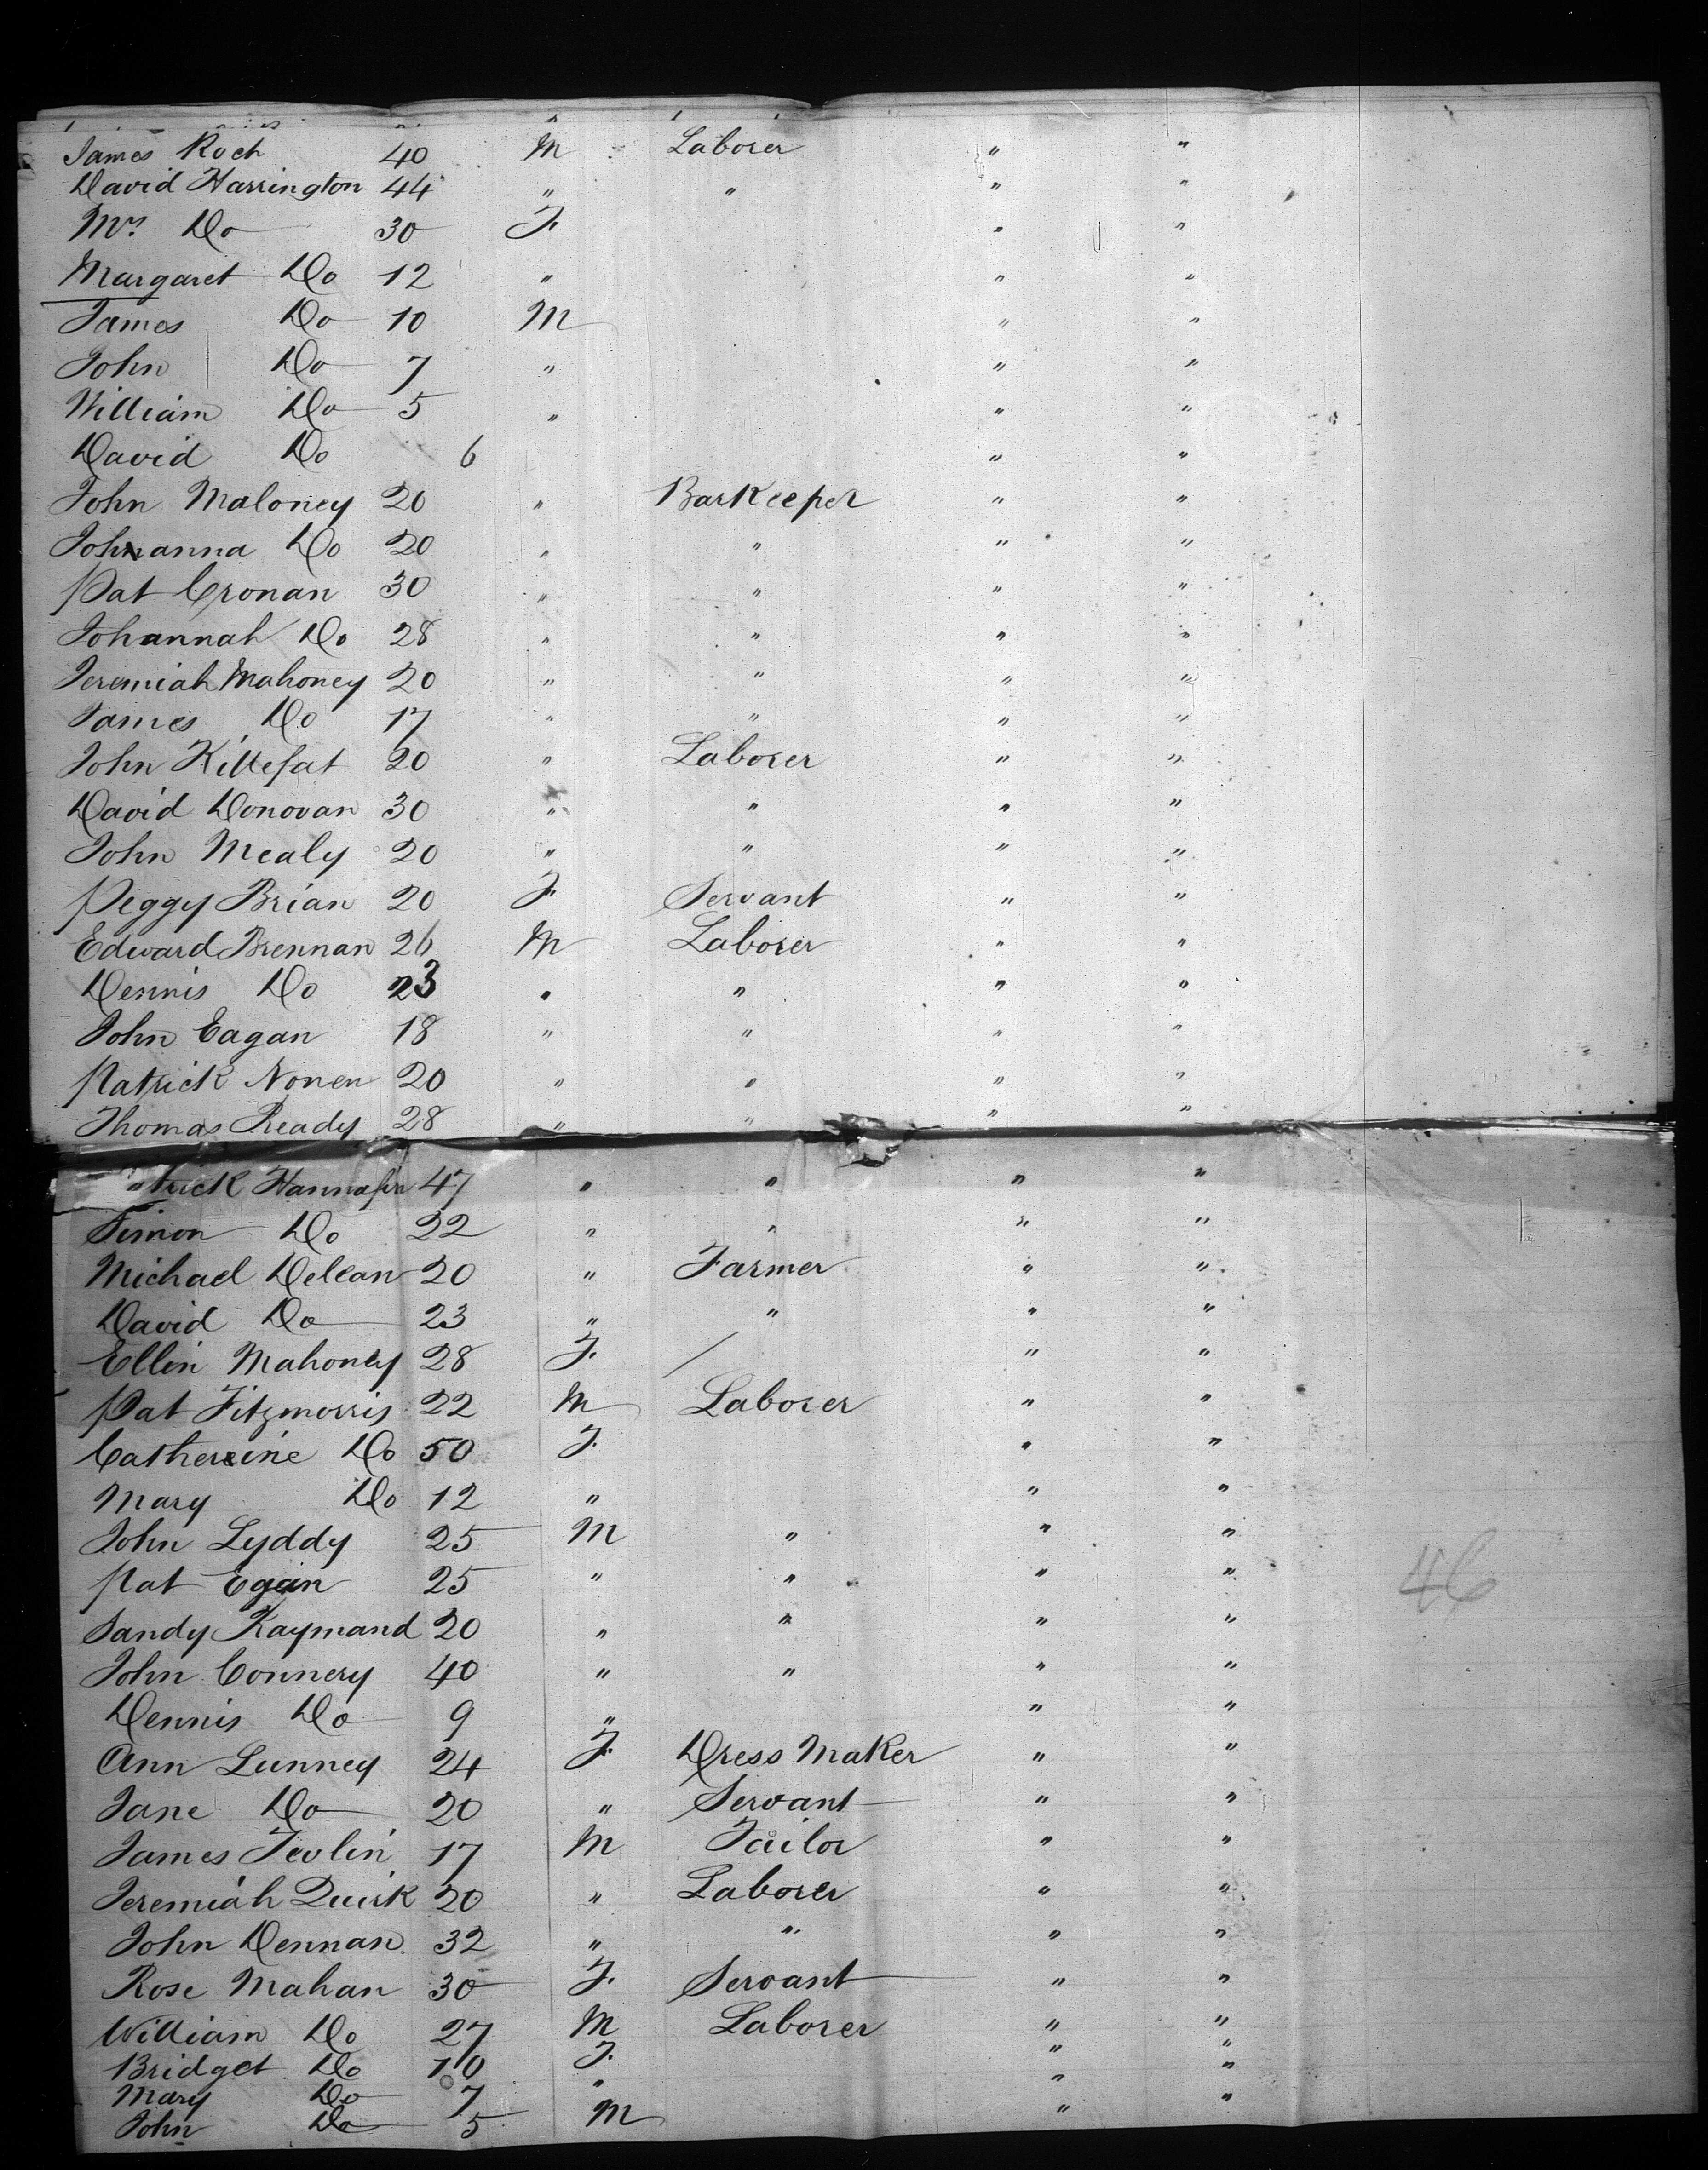 James Roch 40 M Laborer " "
David Harrington 44 " " " "
Mrs Do 30 F. " "
Margaret Do 12 " " "
James Do 10 M " "
John Do 7 " " "
William Do 5 " " "
David Do 6 " "
John Maloney 20 " BarKeeper " "
Johnanna Do 20 " " " "
Pat Cronan 30 " " " "
Johannah Do 28 " " " "
Jeremiah Mahoney 20 " " " "
James Do 17 " " " "
John Killefat 20 " Laborer " "
David Donovan 30 " " " "
John Mealy 20 " " " "
Peggy Brian 20 F. Servant " "
Edward Brennan 26 M Laborer " "
Dennis Do 23 " " " "
John Eagan 18 " " " "
Patrick Nonen 20 " " " "
Thomas Ready 28 " " " "
trick Hannafin 47 " " " "
Simon Do 22 " " " "
Michael Delean 20 " Farmer " "
David Do 23 " " " "
Ellin Mahoney 28 F. / " "
Pat Fitzmorris 22 M Laborer " "
Cathereine Do 50 F. " "
Mary Do 12 " " "
John Lyddy 25 M " " "
Pat Egan 25 " " " "
Sandy Raymand 20 " " " "
John Connery 40 " " " "
Dennis Do 9 " " "
46
Ann Lunney 24 F. Dress Maker " "
Jane Do 20 " Servant " "
James Tevlin 17 M Tailor " "
Jeremiah Quirk 20 " Laborer " "
John Dennan 32 " " " "
Rose Mahan 30 F. Servant " "
William Do 27 M Laborer " "
Bridget Do 10 F. " "
Mary Do 7 " " "
John Do 5 M " "